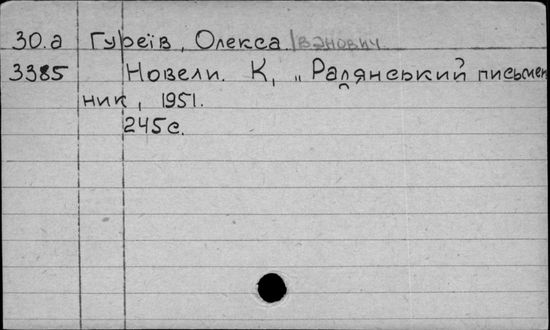 30.а Гуреїв, Олекса Іванович
3385 Новели. К, „Радянський письмен
ник, 1951.
245 с.